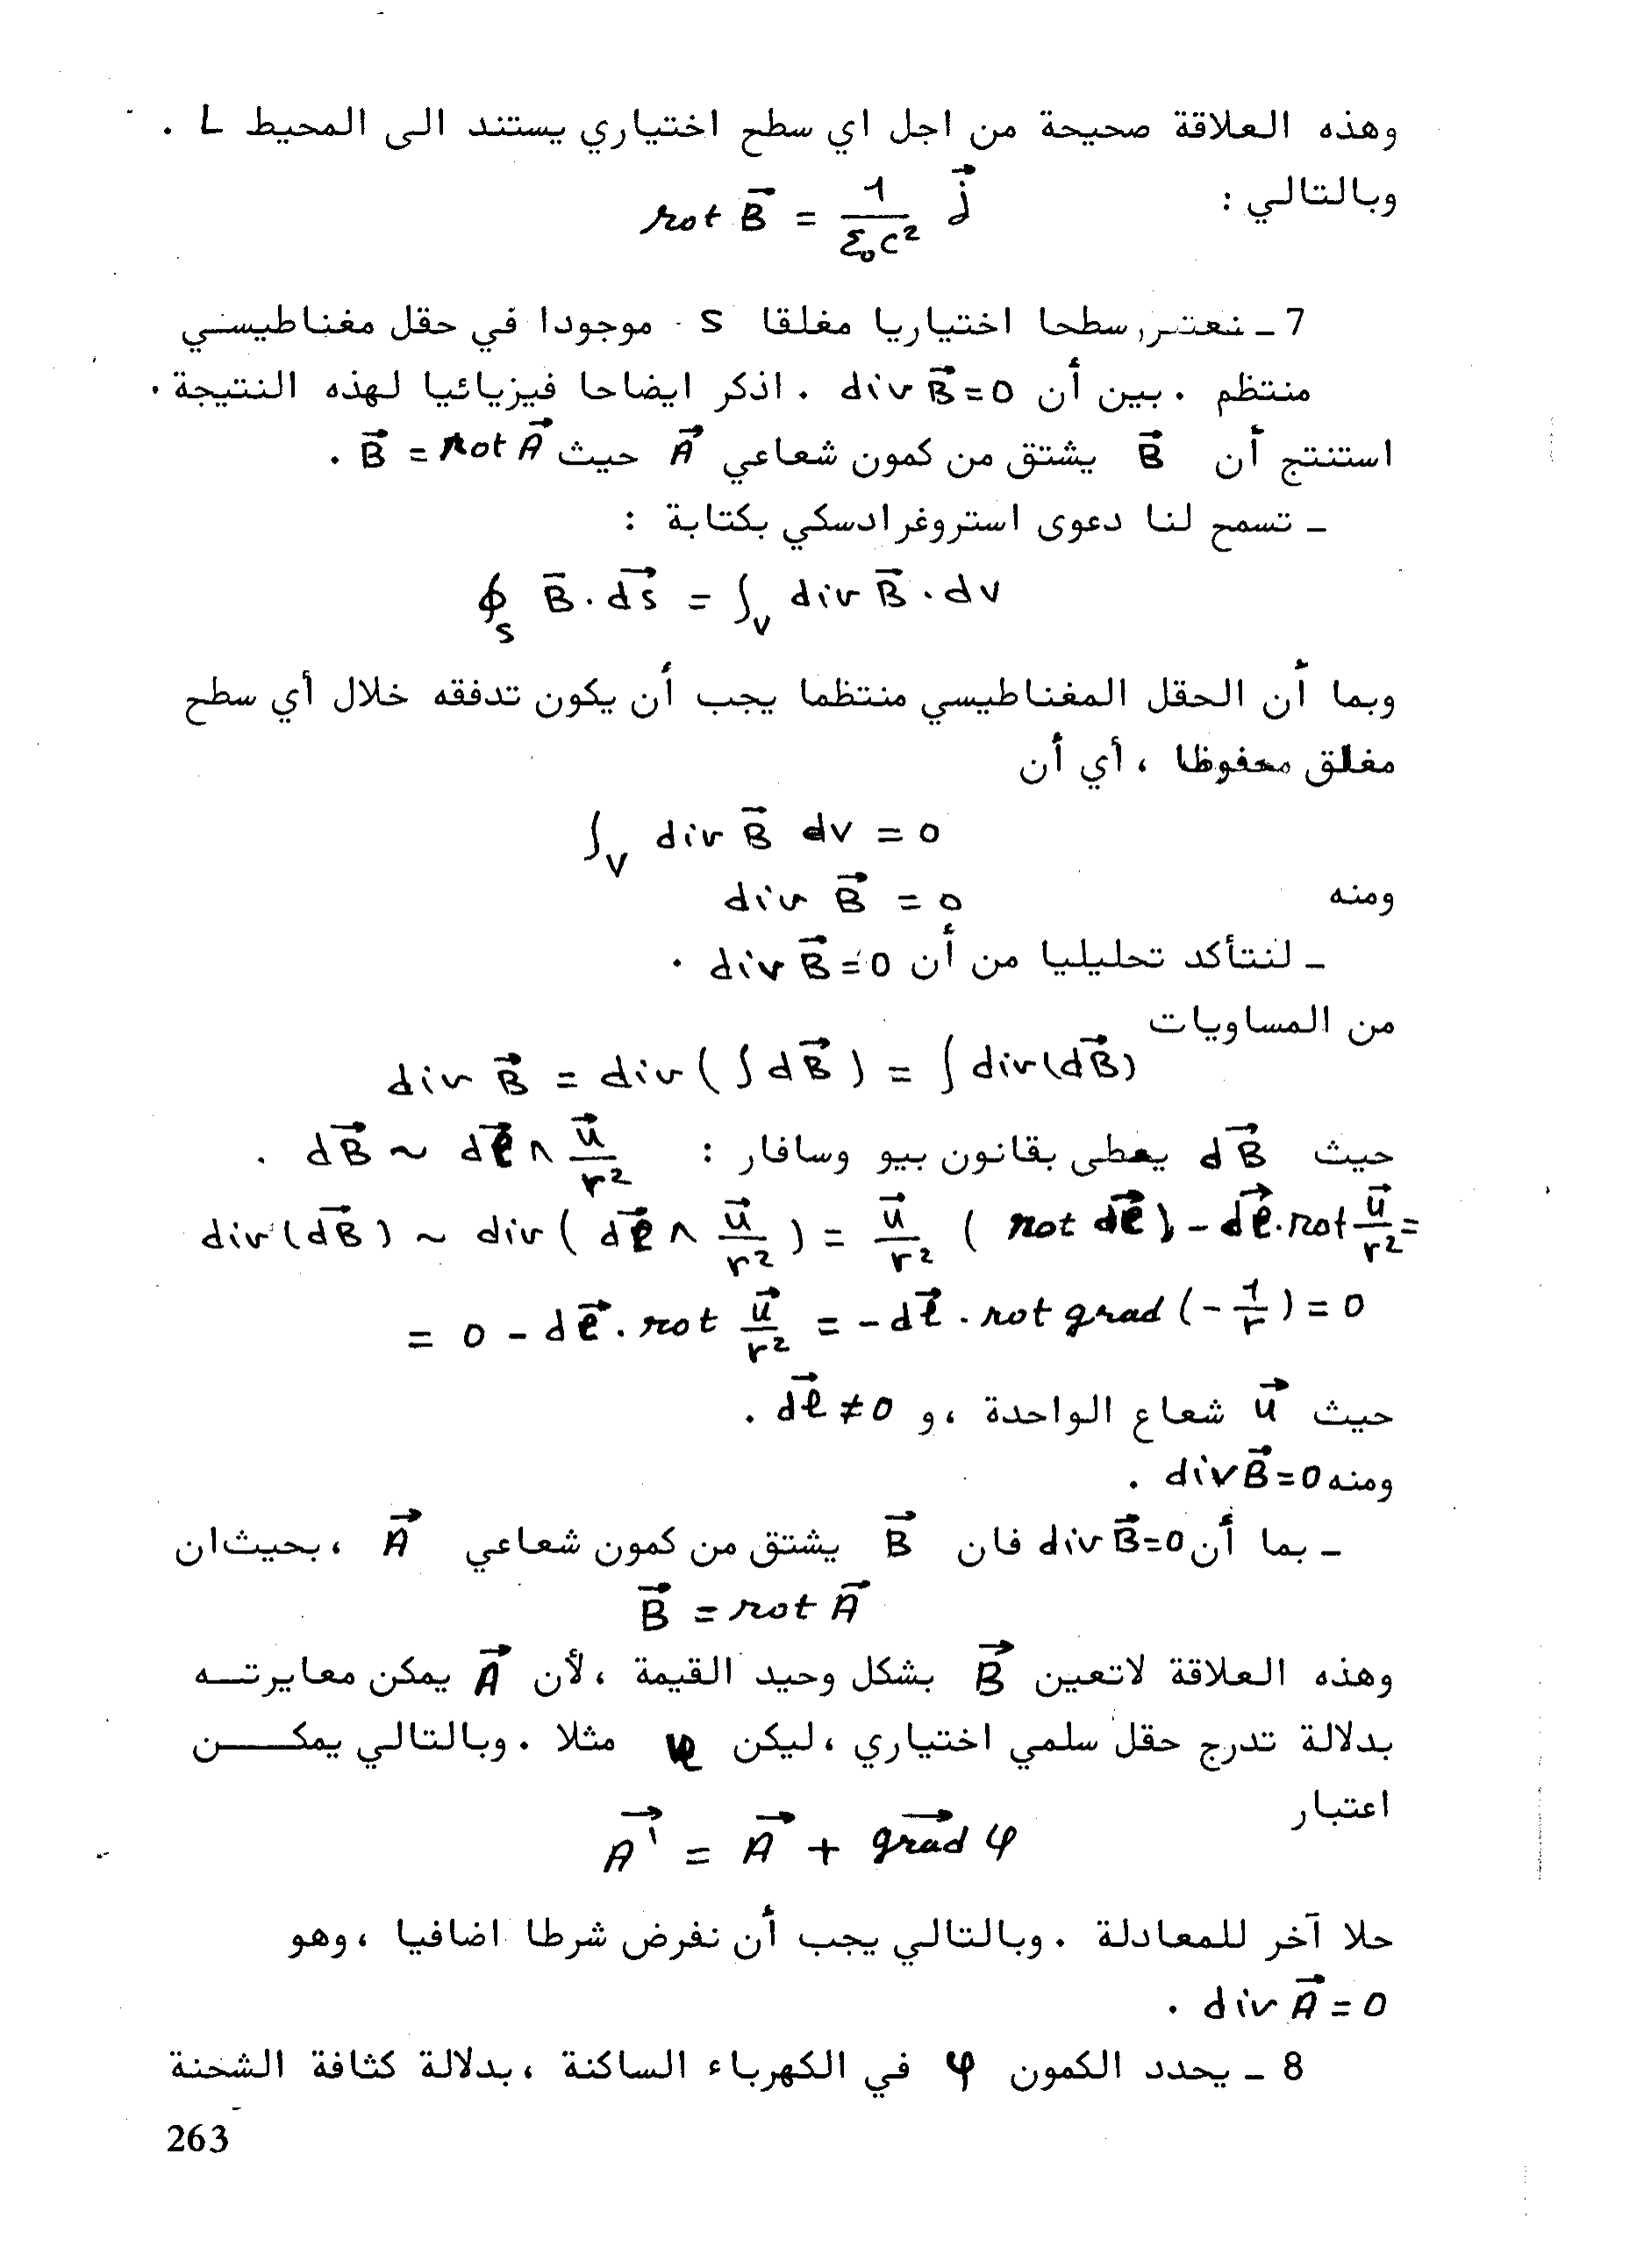 وهذه العلاقة صحيحة من اجل اي سطح اختياري يستند الى المحيط L .
وبالتالي :
rot B⃗ = 1/(ε₀c²) j⃗
7 ـ نعتبر سطحا اختياريا مغلقا S موجودا في حقل مغناطيسي
منتظم . بين أن div B⃗ = 0 . اذكر ايضاحا فيزيائيا لهذه النتيجة .
استنتج أن B⃗ يشتق من كمون شعاعي A⃗ حيث B⃗ = rot A⃗ .
ـ تسمح لنا دعوى استروغرادسكي بكتابة :
∮_S B⃗ . ds⃗ = ∫_V div B⃗ . dv
وبما أن الحقل المغناطيسي منتظما يجب أن يكون تدفقه خلال أي سطح
مغلق محفوظا ، أي أن
∫_V div B⃗ dv = 0
ومنه div B⃗ = 0
ـ لنتأكد تحليليا من أن div B⃗ = 0 .
من المساويات
div B⃗ = div ( ∫ dB⃗ ) = ∫ div(dB⃗)
حيث dB⃗ يعطى بقانون بيو وسافار : dB⃗ ~ dℓ⃗ ∧ u⃗/r² .
div(dB⃗) ~ div ( dℓ⃗ ∧ u⃗/r² ) = u⃗/r² ( rot dℓ⃗ ) - dℓ⃗ . rot u⃗/r² =
= 0 - dℓ⃗ . rot u⃗/r² = - dℓ⃗ . rot grad (- 1/r ) = 0
حيث u⃗ شعاع الواحدة ، و dℓ⃗ ≠ 0 .
ومنه div B⃗ = 0 .
ـ بما أن div B⃗ = 0 فان B⃗ يشتق من كمون شعاعي A⃗ ، بحيث ان
B⃗ = rot A⃗
وهذه العلاقة لاتعين B⃗ بشكل وحيد القيمة ، لأن A⃗ يمكن معايرتـه
بدلالة تدرج حقل سلمي اختياري ، ليكن φ مثلا . وبالتالي يمكـــن
اعتبار
A⃗' = A⃗ + grad⃗ φ
حلا آخر للمعادلة . وبالتالي يجب أن نفرض شرطا اضافيا ، وهو
div A⃗ = 0 .
8 ـ يحدد الكمون φ في الكهرباء الساكنة ، بدلالة كثافة الشحنة
263